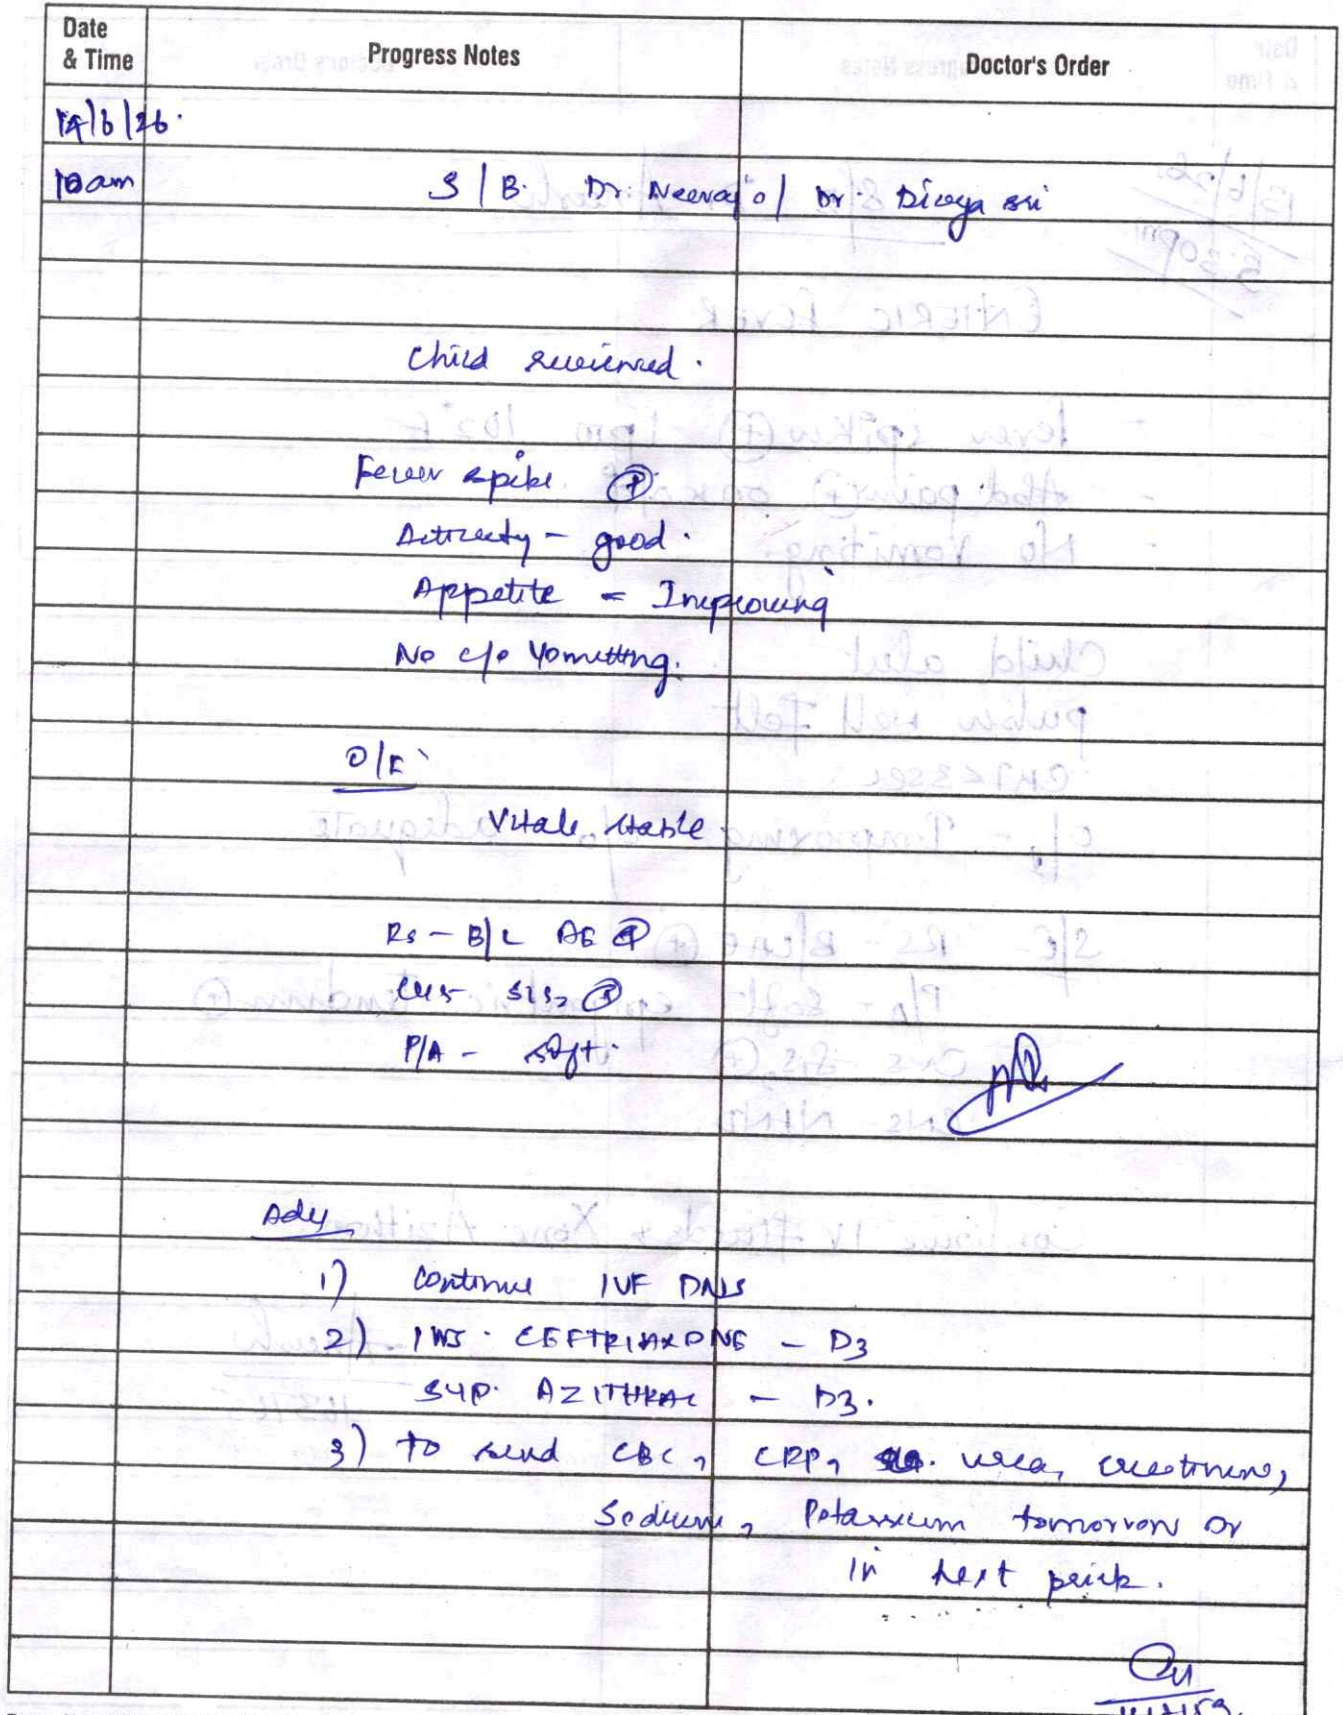 Date & Time
Progress Notes
Doctor's Order
14/6/26.
10am
S/B. Dr. Neeraj o/ Dr Divya sri
Child reviewed.
Fever spike (+)
Activity - good.
Appetite - Improving
No c/o Vomitting.
O/E
Vitals stable
Rs - B/L AE (+)
CVS S1S2 (+)
P/A - soft.
Adv
1) Continue IVF DNS
2) INJ. CEFTRIAXONE - D3
SYP. AZITHRAL - D3.
3) To send CBC, CRP, urea, creatinine,
Sodium, Potassium tomorrow or
in next prick.